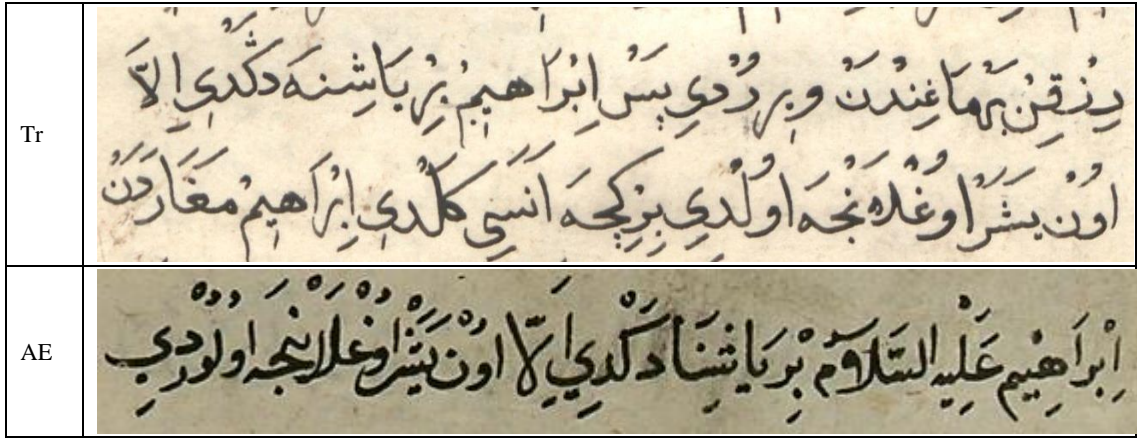 Tr
رِزْقِنْ بَرْمَاغِنْدَنْ وِيرُرْدِي پَسْ اِبْرَاهِيمْ بِرْ يَاشِنَه دَكْدِي اِلَّا
اوُنْ يَشَرْ اوُغْلَانْجَه اوُلْدِي بِرْ كِيجَه اَنَسِي كَلْدِي اِبْرَاهِيمْ مَغَارَدَنْ
AE
اِبْرَاهِيْم عَلَيْهِ السَّلَامْ بِرْ يَاشِنَا دَكْدِي اِلَّا اوُنْ يَشَرْ اوُغْلَانْجَه اوُلُورْدِي